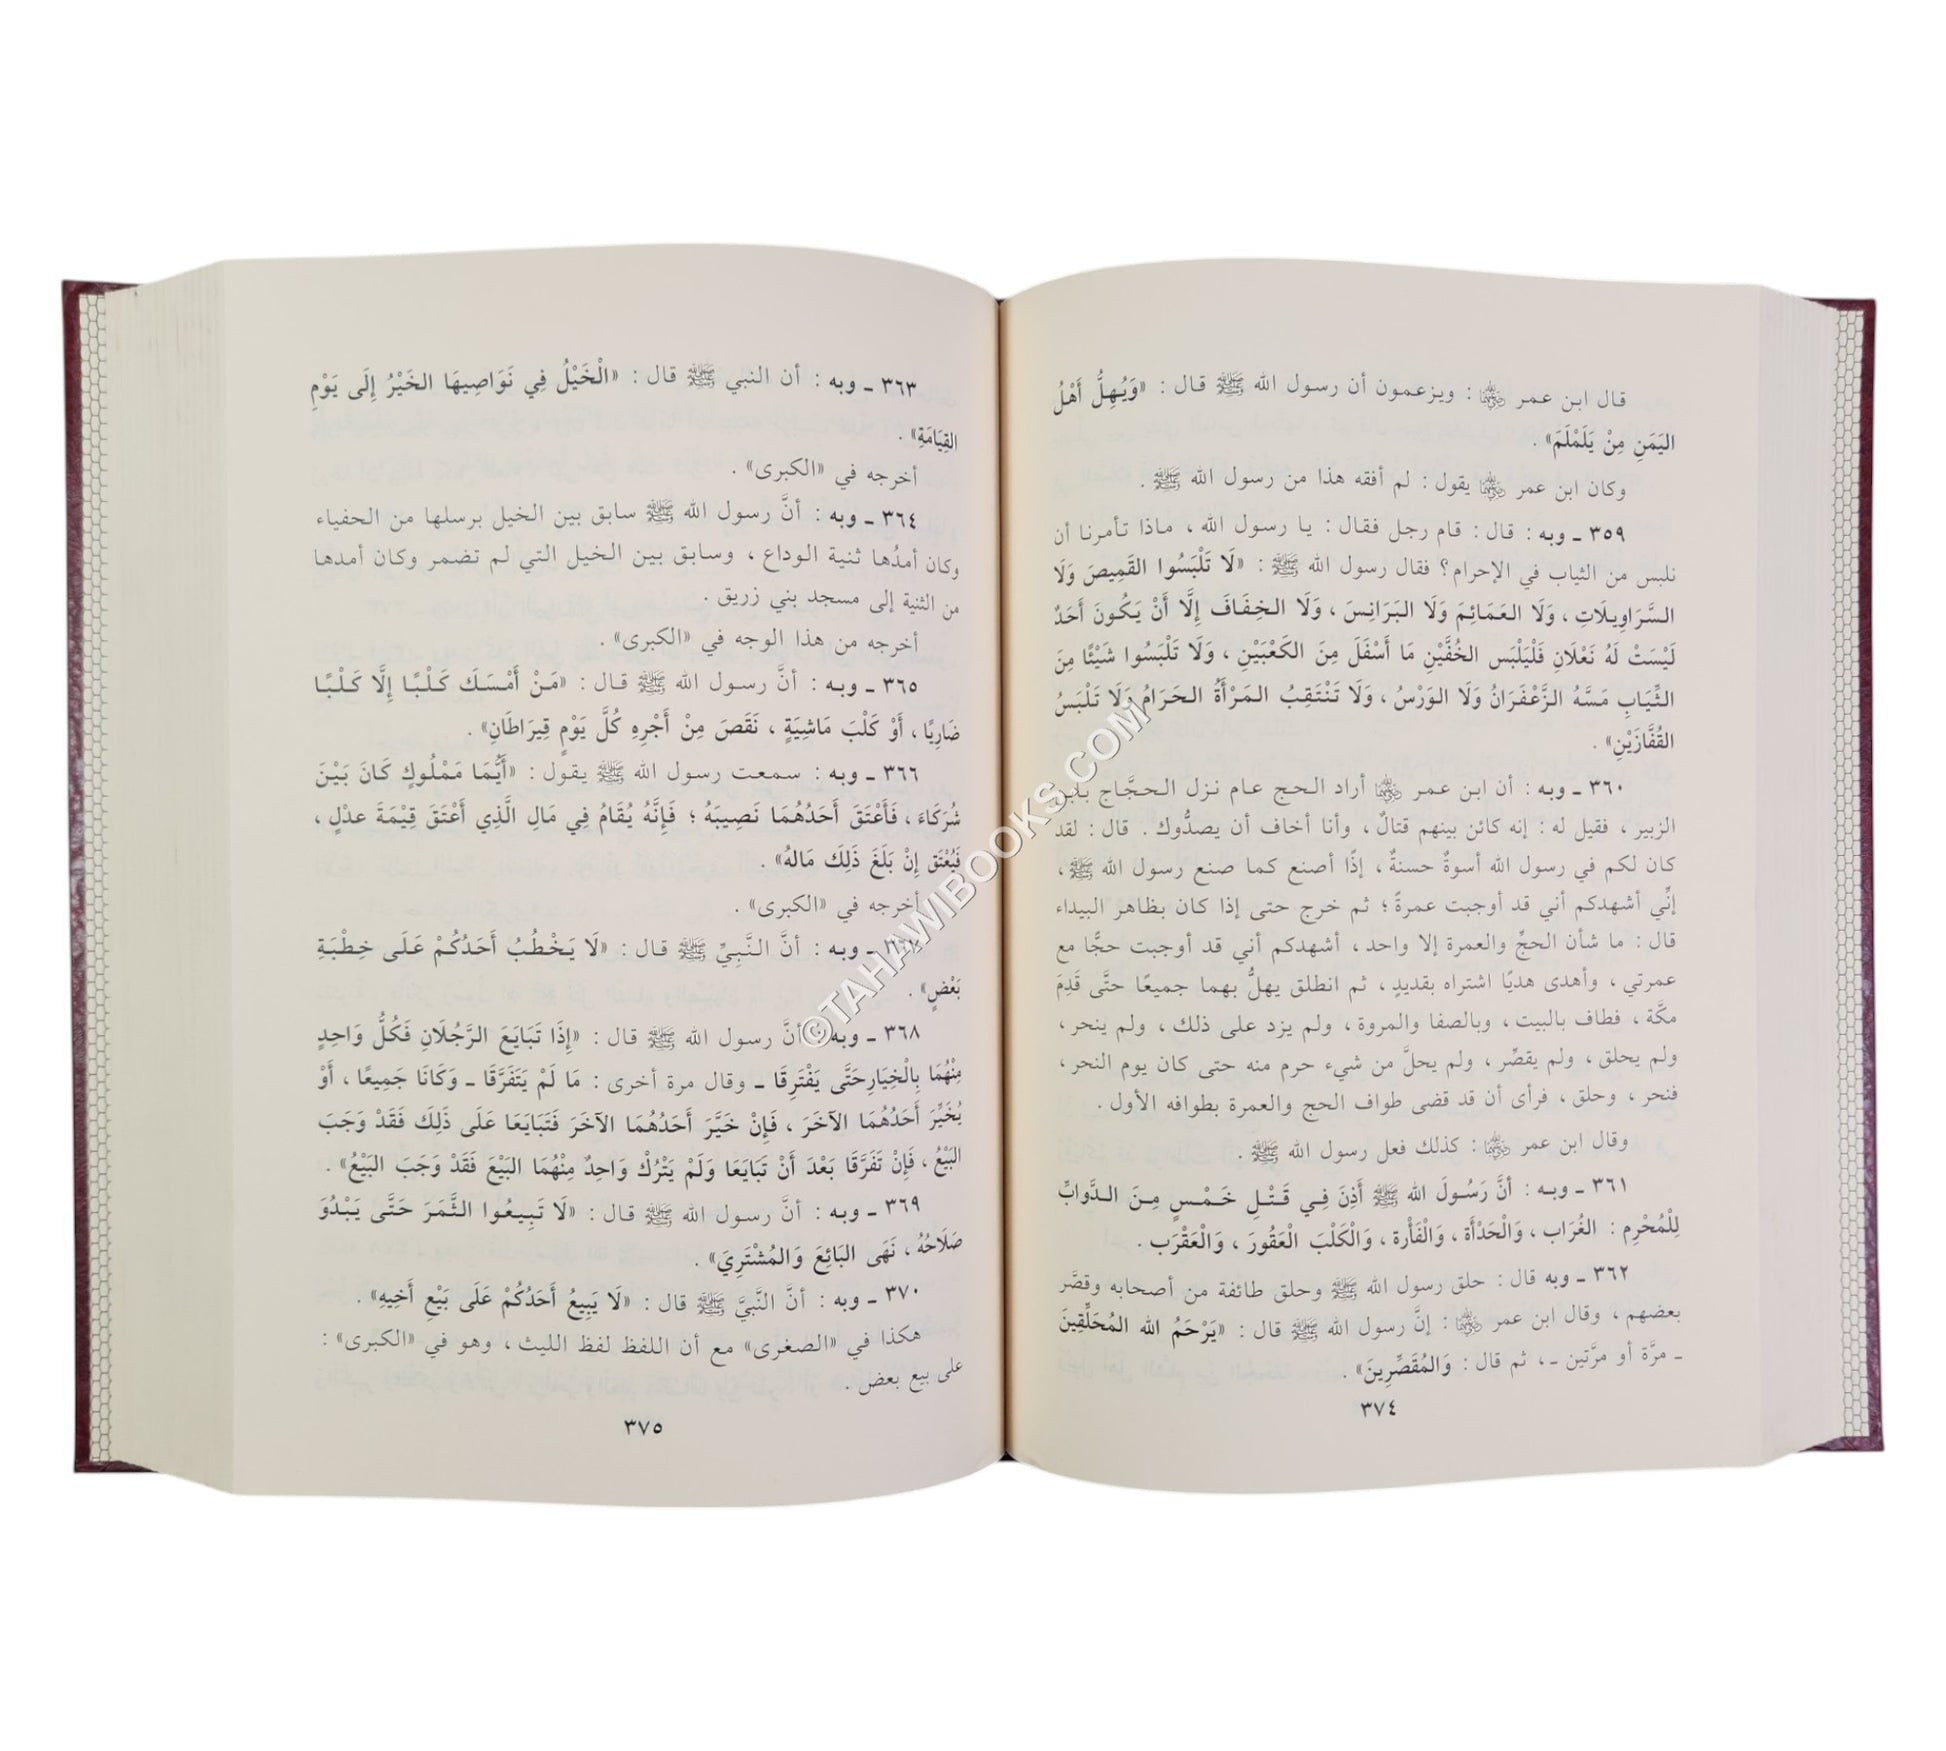 قال ابن عمر رضي الله عنهما : ويزعمون أن رسول الله ﷺ قال : «وَيُهِلُّ أَهْلُ
اليَمَنِ مِنْ يَلَمْلَمَ» .
وكان ابن عمر رضي الله عنهما يقول : لم أفقه هذا من رسول الله ﷺ .
٣٥٩ ـ وبه : قال : قام رجل فقال : يا رسول الله ، ماذا تأمرنا أن
نلبس من الثياب في الإحرام؟ فقال رسول الله ﷺ : «لَا تَلْبَسُوا القَمِيصَ وَلَا
السَّرَاوِيلَاتِ ، وَلَا العَمَائِمَ وَلَا البَرَانِسَ ، وَلَا الخِفَافَ إِلَّا أَنْ يَكُونَ أَحَدٌ
لَيْسَتْ لَهُ نَعْلَانِ فَلْيَلْبَسِ الخُفَّيْنِ مَا أَسْفَلَ مِنَ الكَعْبَيْنِ ، وَلَا تَلْبَسُوا شَيْئًا مِنَ
الثِّيَابِ مَسَّهُ الزَّعْفَرَانُ وَلَا الوَرْسُ ، وَلَا تَنْتَقِبُ المَرْأَةُ الحَرَامُ وَلَا تَلْبَسُ
القُفَّازَيْنِ» .
٣٦٠ ـ وبه : أن ابن عمر رضي الله عنهما أراد الحج عام نزل الحجَّاج بابن
الزبير ، فقيل له : إنه كائن بينهم قتالٌ ، وأنا أخاف أن يصدُّوك . قال : لقد
كان لكم في رسول الله أسوةٌ حسنةٌ ، إذًا أصنع كما صنع رسول الله ﷺ ،
إنّي أشهدكم أني قد أوجبت عمرةً ؛ ثم خرج حتى إذا كان بظاهر البيداء
قال : ما شأن الحجِّ والعمرة إلا واحد ، أشهدكم أني قد أوجبت حجًّا مع
عمرتي ، وأهدى هديًا اشتراه بقديدٍ ، ثم انطلق يهلُّ بهما جميعًا حتَّى قَدِمَ
مكَّة ، فطاف بالبيت ، وبالصفا والمروة ، ولم يزد على ذلك ، ولم ينحر ،
ولم يحلق ، ولم يقصِّر ، ولم يحلَّ من شيء حرم منه حتى كان يوم النحر ،
فنحر ، وحلق ، فرأى أن قد قضى طواف الحج والعمرة بطوافه الأول .
وقال ابن عمر رضي الله عنهما : كذلك فعل رسول الله ﷺ .
٣٦١ ـ وبه : أنَّ رَسُولَ الله ﷺ أَذِنَ فِي قَتْلِ خَمْسٍ مِنَ الدَّوابِّ
لِلْمُحْرِمِ : الغُرَاب ، وَالْحَدْأَة ، وَالْفَأْرة ، وَالْكَلْبَ الْعَقُورَ ، وَالْعَقْرَب .
٣٦٢ ـ وبه قال : حلق رسول الله ﷺ وحلق طائفة من أصحابه وقصَّر
بعضهم ، وقال ابن عمر رضي الله عنهما : إنَّ رسول الله ﷺ قال : «يَرْحَمُ الله المُحَلِّقِينَ
ـ مرَّة أو مرَّتين ـ، ثم قال : وَالمُقَصِّرِينَ» .
٣٧٤
٣٦٣ ـ وبه : أن النبي ﷺ قال : «الْخَيْلُ فِي نَوَاصِيهَا الخَيْرُ إِلَى يَوْمِ
القِيَامَةِ» .
أخرجه في «الكبرى» .
٣٦٤ ـ وبه : أنَّ رسول الله ﷺ سابق بين الخيل برسلها من الحفياء
وكان أمدُها ثنية الوداع ، وسابق بين الخيل التي لم تضمر وكان أمدها
من الثنية إلى مسجد بني زريق .
أخرجه من هذا الوجه في «الكبرى» .
٣٦٥ ـ وبه : أنَّ رسول الله ﷺ قال : «مَنْ أَمْسَكَ كَلْبًا إِلَّا كَلْبًا
ضَارِيًا ، أَوْ كَلْبَ مَاشِيَةٍ ، نَقَصَ مِنْ أَجْرِهِ كُلَّ يَوْمٍ قِيرَاطَانِ» .
٣٦٦ ـ وبه : سمعت رسول الله ﷺ يقول : «أَيُّمَا مَمْلُوكٍ كَانَ بَيْنَ
شُرَكَاءَ ، فَأَعْتَقَ أَحَدُهُمَا نَصِيبَهُ ؛ فَإِنَّهُ يُقَامُ فِي مَالِ الَّذِي أَعْتَقَ قِيْمَةَ عدْلٍ ،
فَيُعْتَق إِنْ بَلَغَ ذَلِكَ مَالهُ» .
أخرجه في «الكبرى» .
ـ وبه : أنَّ النَّبِيَّ ﷺ قال : «لَا يَخْطُبُ أَحَدُكُمْ عَلَى خِطْبَةِ
بَعْضٍ» .
٣٦٨ ـ وبه : أنَّ رسول الله ﷺ قال : «إِذَا تَبَايَعَ الرَّجُلَانِ فَكُلُّ وَاحِدٍ
مِنْهُمَا بِالْخِيَارِ حَتَّى يَفْتَرِقَا ـ وقال مرة أخرى : مَا لَمْ يَتَفَرَّقَا ـ وَكَانَا جَمِيعًا ، أَوْ
يُخَيِّرَ أَحَدُهُمَا الآخَرَ ، فَإِنْ خَيَّرَ أَحَدُهُمَا الآخَرَ فَتَبَايَعَا عَلَى ذَلِكَ فَقَدْ وَجَبَ
البَيْعُ ، فَإِنْ تَفَرَّقَا بَعْدَ أَنْ تَبَايَعَا وَلَمْ يَتْرُكْ وَاحِدٌ مِنْهُمَا البَيْعَ فَقَدْ وَجَبَ البَيْعُ» .
٣٦٩ ـ وبه : أنَّ رسول الله ﷺ قال : «لَا تَبِيعُوا الثَّمَرَ حَتَّى يَبْدُوَ
صَلَاحُهُ ، نَهَى البَائِعَ وَالمُشْتَرِيَ» .
٣٧٠ ـ وبه : أنَّ النَّبيَّ ﷺ قال : «لَا يَبِيعُ أَحَدُكُمْ عَلَى بَيْعِ أَخِيهِ» .
هكذا في «الصغرى» مع أن اللفظ لفظ الليث ، وهو في «الكبرى» :
على بيع بعض .
٣٧٥
©TAHAWIBOOKS.COM